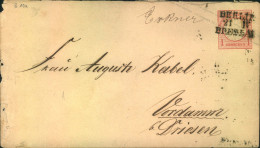 Erkner
BERLIN
21 10
BRESLAU
Frau Auguste Kabel.
Vordamm
b. Driesen